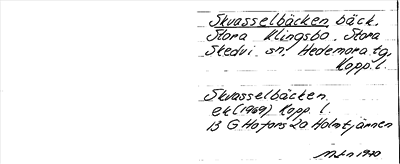 Skvasselbäcken bäck.
Stora Klingsbo. Stora
Skedvi sn. Hedemora tg.
Kopp. l.
Skvasselbäcken
ek (1969) Kopp. l.
13 G Hofors 2a Holmtjärnen
1970